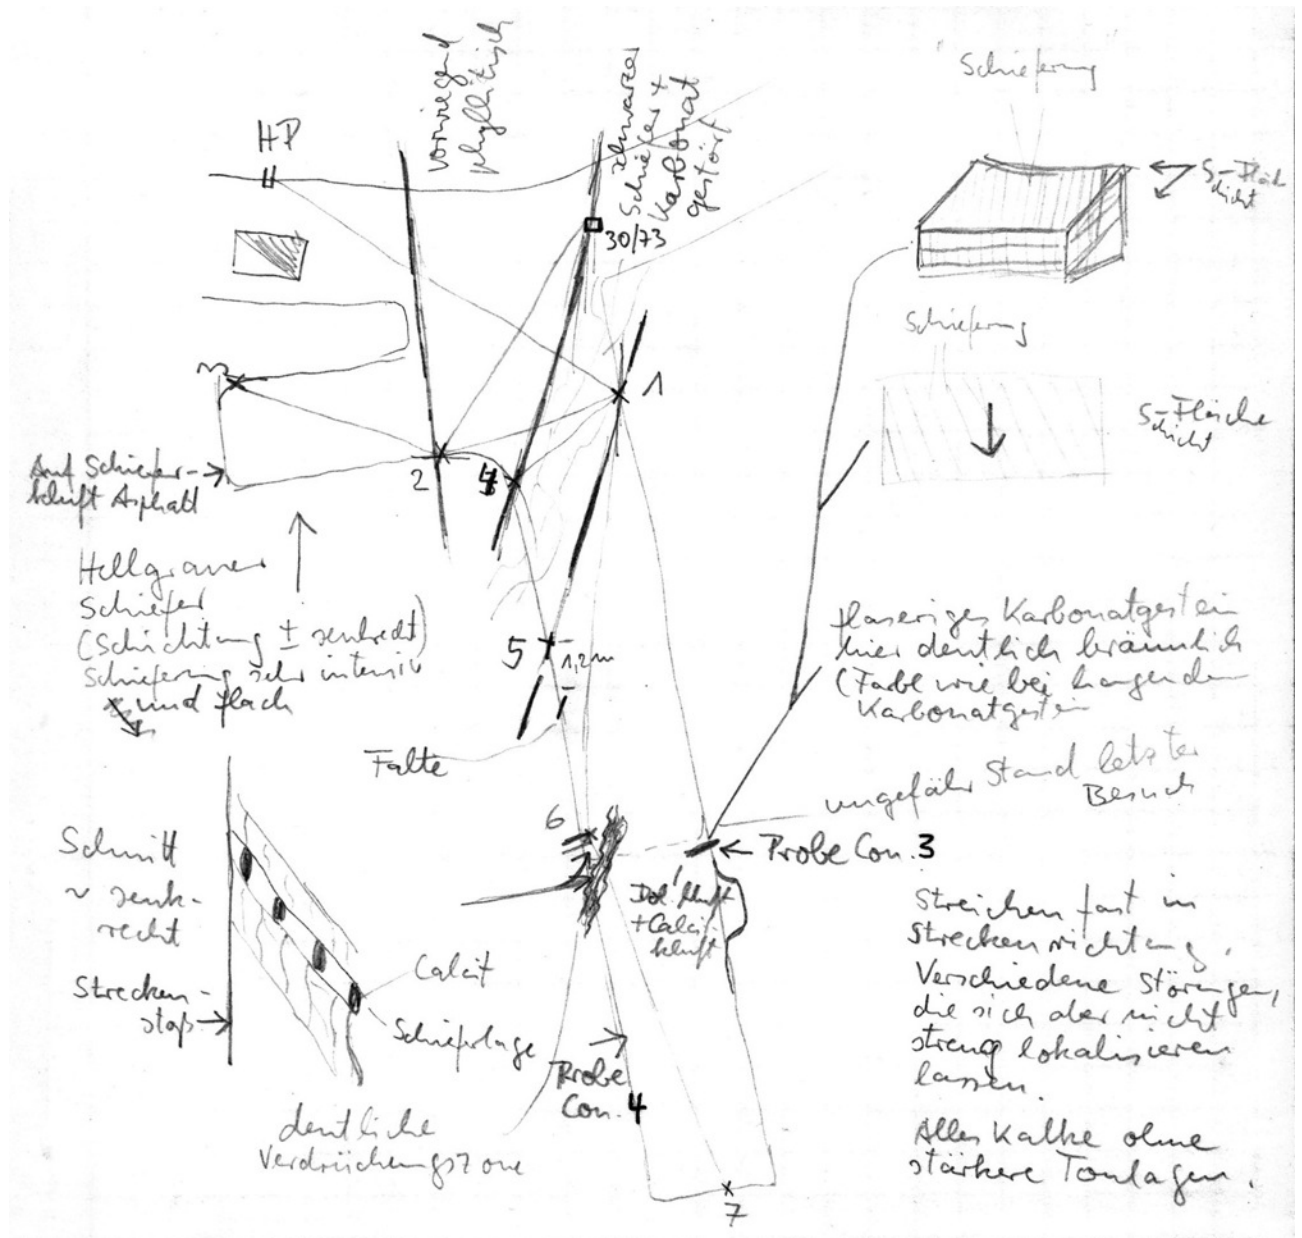 HP
vorwiegend
phyllitisch
schwarzer
Schiefer +
Karbonat
gestört
30/73
Schieferung
S-Fläche
Schicht
Schieferung
S-Fläche
Schicht
3
1
2
4
Auf Schiefer-
kluft Asphalt
Hellgrauer
Schiefer
(Schichtung ± senkrecht)
Schieferung sehr intensiv
und flach
5
1,2m
Falte
flaseriges Karbonatgestein
hier deutlich bräunlich
(Farbe wie bei hangendem
Karbonatgestein
ungefähr Stand letzter
Besuch
6
Probe Con. 3
Dol. kluft
+ Calcit-
kluft
Schnitt
~ senk-
recht
Strecken-
stoß
Calcit
Schieferlage
Probe
Con. 4
deutliche
Verdrückungszone
7
Streichen fast in
Streckenrichtung.
Verschiedene Störungen,
die sich aber nicht
streng lokalisieren
lassen.
Alles Kalke ohne
stärkere Tonlagen.